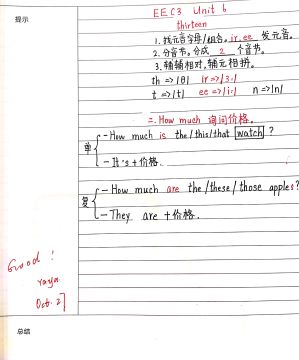 提示
EEC3 Unit 6
thirteen
1. 找元音字母/组合。ir, ee 发元音。
2. 分音节。分成 2 个音节。
3. 辅辅相对, 辅元相拼。
th => |θ| ir => |ɜː|
t => |t| ee => |iː| n => |n|
二. How much 询问价格.
单 - How much is the/this/that watch ?
- It's + 价格.
复 - How much are the/these/those apples?
- They are + 价格.
Good!
Yaya
Oct. 27
总结